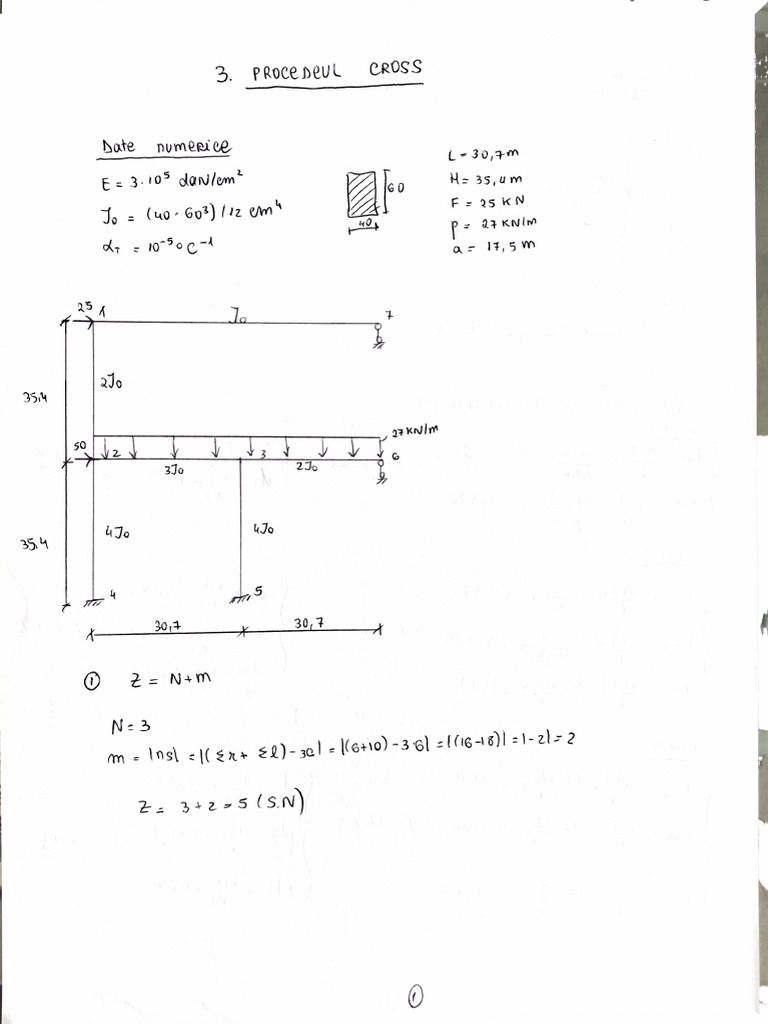 3. PROCEDEUL CROSS
Date numerice
E = 3·10⁵ daN/cm²
J₀ = (40·60³)/12 cm⁴
α_T = 10⁻⁵ °C⁻¹
60
40
L = 30,7m
H = 35,4m
F = 25 KN
p = 27 KN/m
a = 17,5 m
25 1 J₀ 7
35,4
2J₀
27 KN/m
50 2 3 6
3J₀ 2J₀
35,4
4J₀ 4J₀
4 5
30,7 30,7
① Z = N+m
N = 3
m = |ns| = |(Σr + Σl) - 3c| = |(6+10) - 3·6| = |(16-18)| = |-2| = 2
Z = 3+2 = 5 (S.N)
①